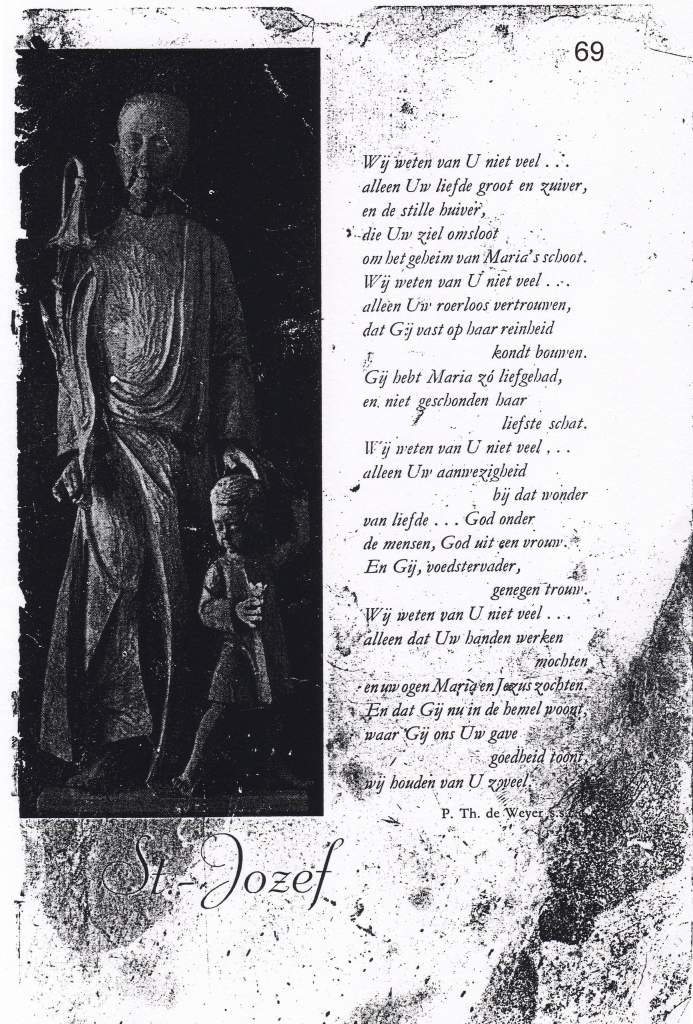 69
Wij weten van U niet veel . . .
alleen Uw liefde groot en zuiver,
en de stille huiver,
die Uw ziel omsloot
om het geheim van Maria's schoot.
Wij weten van U niet veel . . .
alleen Uw roerloos vertrouwen,
dat Gij vast op haar reinheid
kondt bouwen.
Gij hebt Maria zó liefgehad,
en niet geschonden haar
liefste schat.
Wij weten van U niet veel . . .
alleen Uw aanwezigheid
bij dat wonder
van liefde . . . God onder
de mensen, God uit een vrouw.
En Gij, voedstervader,
genegen trouw.
Wij weten van U niet veel . . .
alleen dat Uw handen werken
mochten
en uw ogen Maria en Jezus zochten.
En dat Gij nu in de hemel woont,
waar Gij ons Uw gave
goedheid toont,
wij houden van U zoveel.
P. Th. de Weyer
St.-Jozef